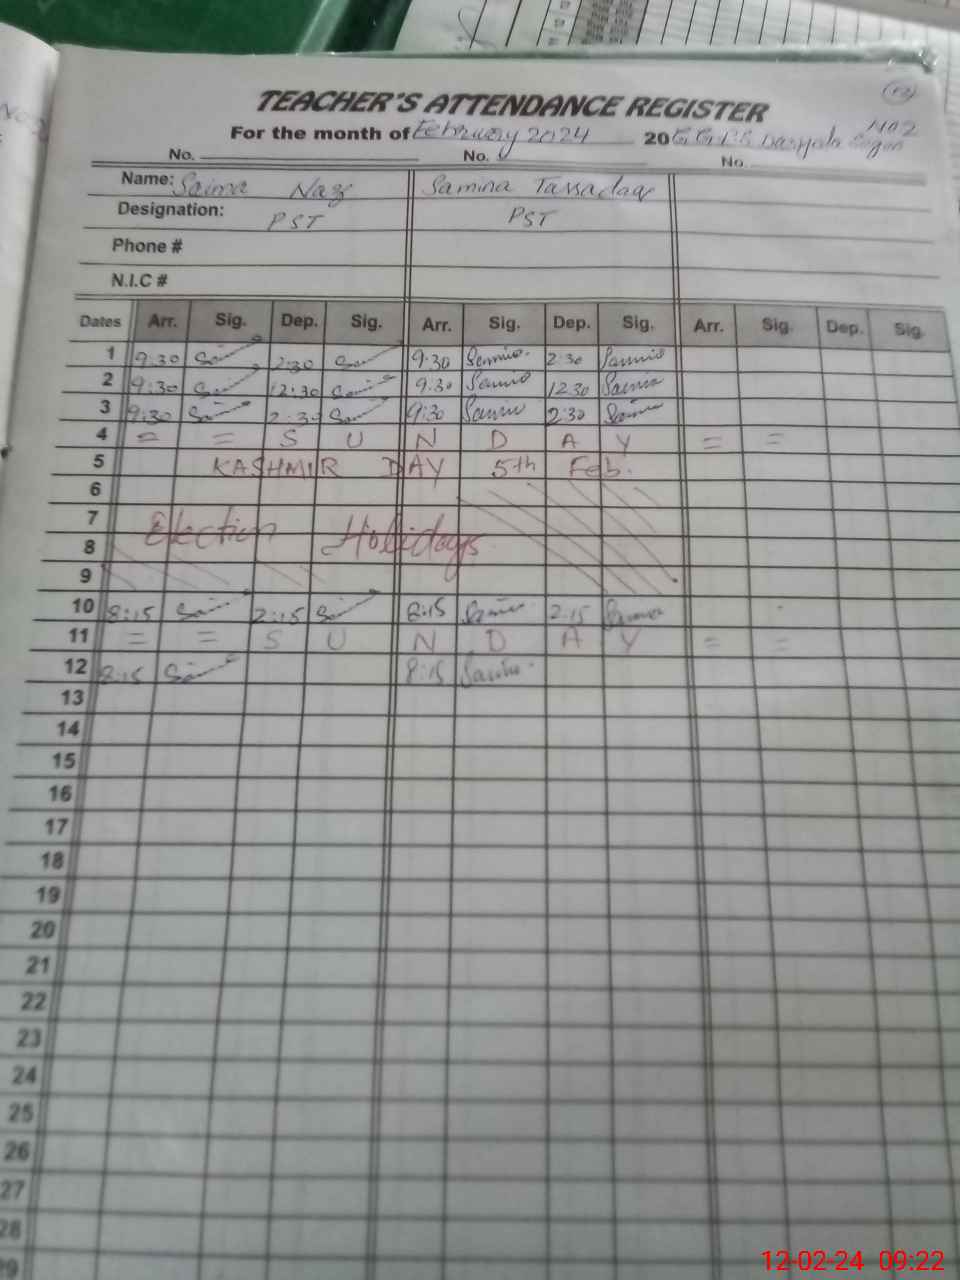 TEACHER'S ATTENDANCE REGISTER
For the month of February 2024 20 G.G.P.S No 2
No. No. No.
Name: Saima Naz Samina Tassadaq
Designation: PST PST
Phone #
N.I.C #
Dates Arr. Sig. Dep. Sig. Arr. Sig. Dep. Sig. Arr. Sig. Dep. Sig.
1 9:30 2:30 9:30 2:30
2 9:30 12:30 9:30 12:30
3 9:30 2:30 9:30 2:30
4 = = S U N D A Y = =
5 KASHMIR DAY 5th Feb.
6
7 Election Holidays
8
9
10 8:15 2:15 8:15 2:15
11 = = S U N D A Y = =
12 8:15 8:15
13
14
15
16
17
18
19
20
21
22
23
24
25
26
27
28
29
12-02-24 09:22